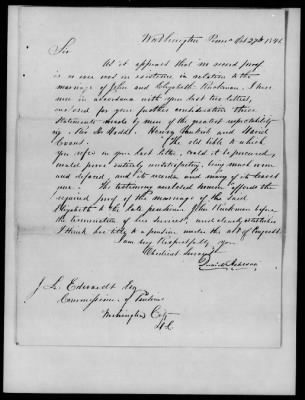 Washington Penna Oct 27th 1846
Sir
As it appears that no record proof
is or ever was in existence in relation to the
marriage of John and Elizabeth Ruckman. I here
now in accordance with your last two letters,
enclosed for your further consideration three
statements made by men of the greatest respectability
viz. Henry and David
Evans. If the old bible to which
you refer in your last letter could it be procured,
would prove entirely unsatisfactory, being much worn
and defaced, and its records and many of its leaves
gone. The testimony enclosed affords the
required proof of the marriage of the said
Elizabeth to the late pensioner John Ruckman before
the termination of his service, and clearly establishes
I think her title to a pension under the act of Congress
I am very Respectfully you
Obedient Servant
J. L. Edwards Esq
Commissioner of Pensions
Washington City
D.C.